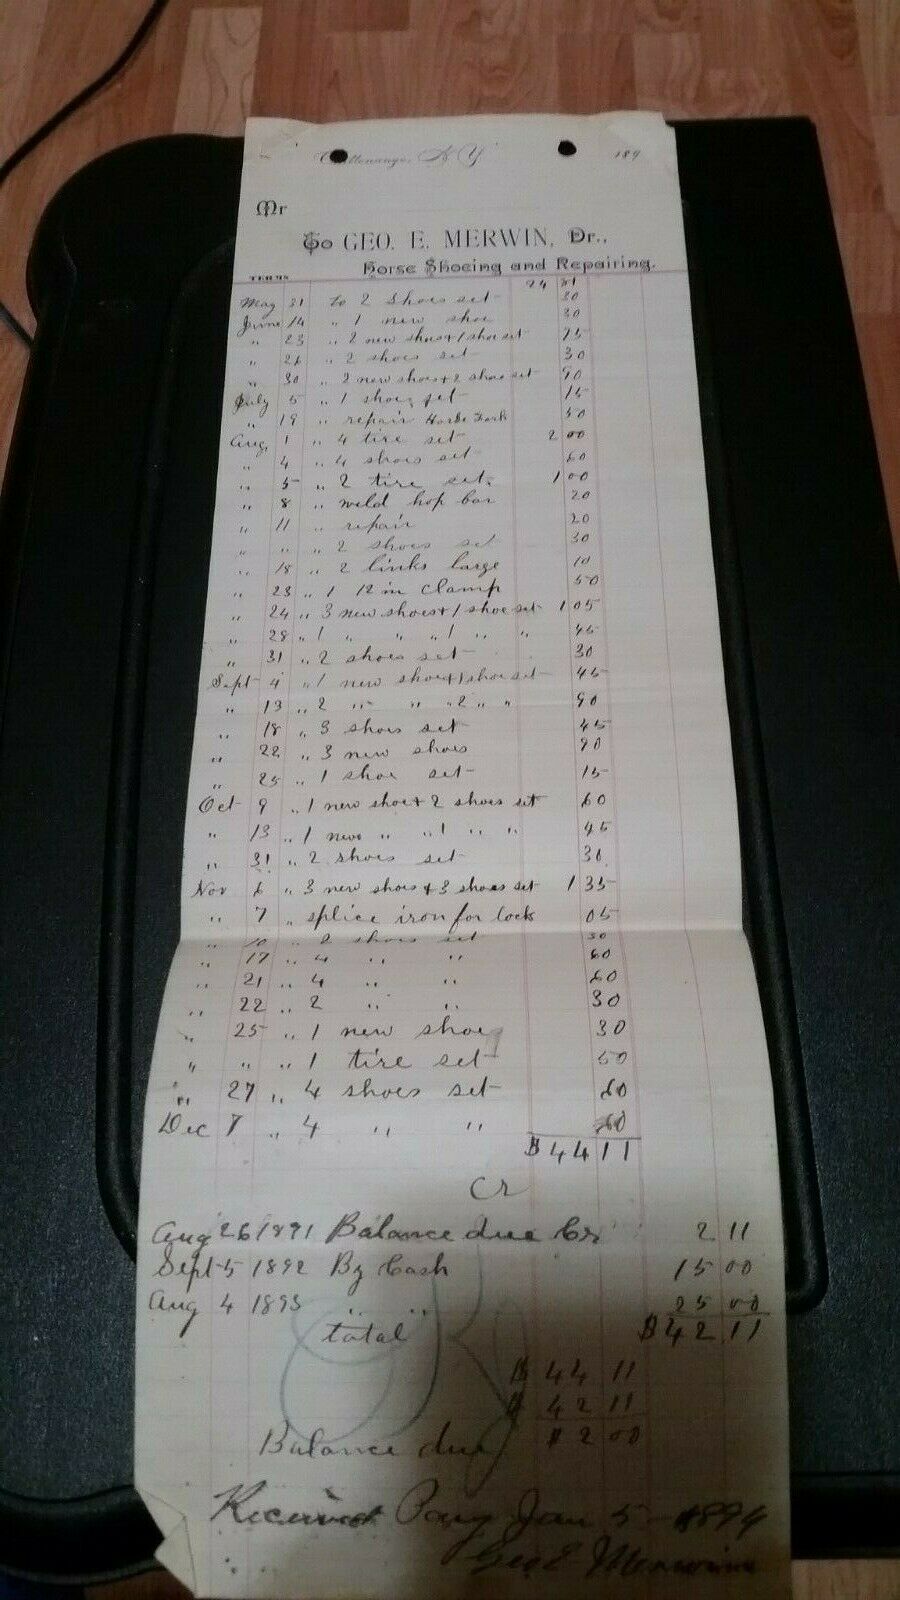 Chittenango, N Y 189
Mr
To GEO. E. MERWIN, Dr.,
Horse Shoeing and Repairing.
TERMS 24 31
May 31 to 2 Shoes set 30
June 14 " 1 new shoe 30
" 23 " 2 new shoes + 1 shoe set 75
" 26 " 2 shoes set 30
" 30 " 2 new shoes + 2 shoe set 90
July 5 " 1 shoe set 15
" 19 " repair Horse Fork 50
Aug, 1 " 4 tire set 2 00
" 4 " 4 shoes set 60
" 5 " 2 tire set. 1 00
" 8 " weld hop bar 20
" 11 " repair 20
" " " 2 shoes set 30
" 18 " 2 links large 10
" 23 " 1 12 in Clamp 50
" 24 " 3 new shoes + 1 shoe set 1 05
" 28 " 1 " " " 1 " " 45
" 31 " 2 shoes set 30
Sept 4 " 1 new shoe + 1 shoe set 45
" 13 " 2 " " " 2 " " 90
" 18 " 3 shoes set 45
" 22 " 3 new shoes 90
" 25 " 1 shoe set 15
Oct 9 " 1 new shoe + 2 shoes set 60
" 13 " 1 new " " 1 " " 45
" 31 " 2 shoes set 30
Nov 6 " 3 new shoes + 3 shoes set 1 35
" 7 " splice iron for lock 05
" 10 " 2 shoes set 30
" 17 " 4 " " 60
" 21 " 4 " " 60
" 22 " 2 " " 30
" 25 " 1 new shoe 30
" " " 1 tire set 50
" 27 " 4 shoes set 60
Dec 7 " 4 " " 60
$44 11
Cr
Aug 26 1891 Balance due Cr 2 11
Sept 5 1892 By Cash 15 00
Aug 4 1893 " " 25 00
total $42 11
$ 44 11
$ 42 11
Balance due $ 2 00
Received Pay Jan 5 - 1894
Geo E Merwin